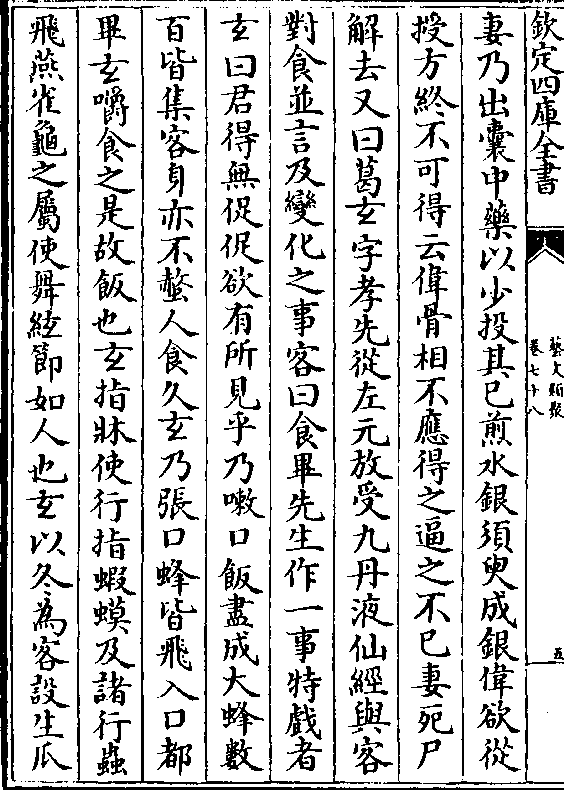 欽定四庫全書
藝文類聚
卷七十八
五
妻乃出囊中藥以少投其已煎水銀須臾成銀偉欲從
授方終不可得云偉骨相不應得之逼之不已妻死尸
解去又曰葛玄字孝先從左元放受九丹液仙經與客
對食並言及變化之事客曰食畢先生作一事特戲者
玄曰君得無促促欲有所見乎乃嗽口飯盡成大蜂數
百皆集客身亦不螫人食久玄乃張口蜂皆飛入口都
畢玄嚼食之是故飯也玄指牀使行指蝦蟆及諸行蟲
飛燕雀龜之屬使舞絃節如人也玄以冬為客設生瓜